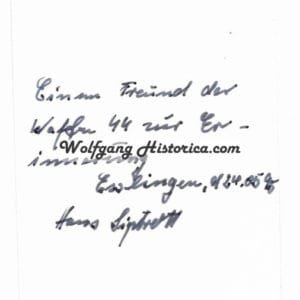 Einem Freund der
Waffen SS zur Er-
innerung
Wolfgang Historica.com
Esslingen, d 24.05
Hans Liptrott